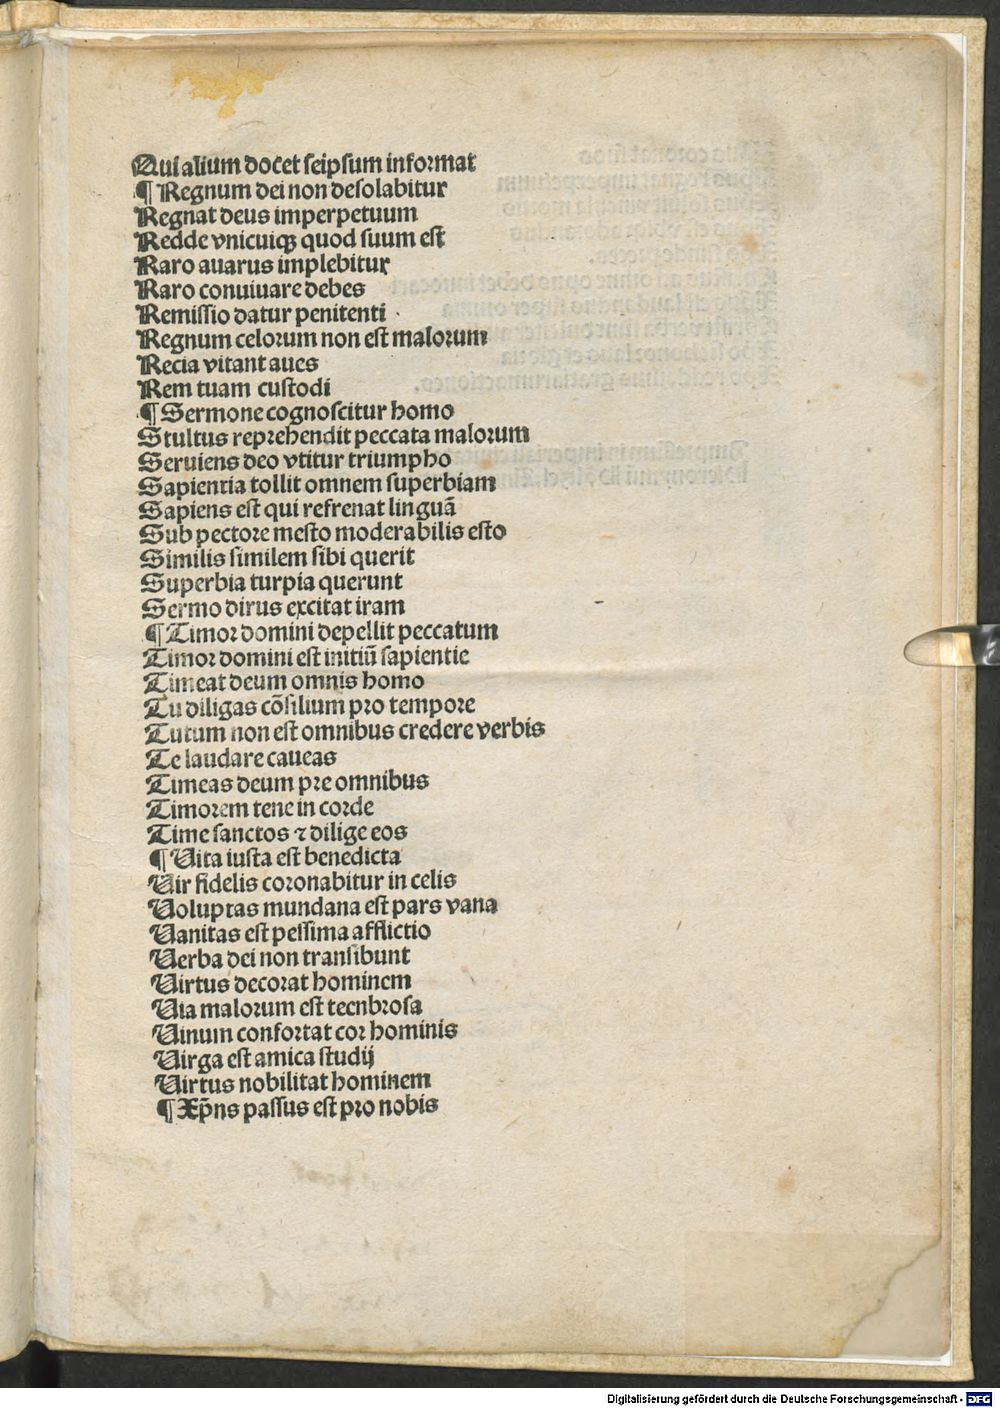 Qui alium docet seipsum informat
¶ Regnum dei non desolabitur
Regnat deus imperpetuum
Redde vnicuiqꝫ quod suum est
Raro auarus implebitur
Raro conuiuare debes
Remissio datur penitenti
Regnum celorum non est malorum
Recia vitant aues
Rem tuam custodi
¶ Sermone cognoscitur homo
Stultus reprehendit peccata malorum
Seruiens deo vtitur triumpho
Sapientia tollit omnem superbiam
Sapiens est qui refrenat linguā
Sub pectore mesto moderabilis esto
Similis similem sibi querit
Superbia turpia querunt
Sermo dirus excitat iram
¶ Timor domini depellit peccatum
Timor domini est initiū sapientie
Timeat deum omnis homo
Tu diligas cōsilium pro tempore
Tutum non est omnibus credere verbis
Te laudare caueas
Timeas deum pre omnibus
Timorem tene in corde
Time sanctos ⁊ dilige eos
¶ Uita iusta est benedicta
Uir fidelis coronabitur in celis
Uoluptas mundana est pars vana
Uanitas est pessima afflictio
Uerba dei non transibunt
Uirtus decorat hominem
Uia malorum est tecnbrosa
Uinum confortat cor hominis
Uirga est amica studij
Uirtus nobilitat hominem
¶ Xp̄ns passus est pro nobis
Digitalisierung gefördert durch die Deutsche Forschungsgemeinschaft - DFG